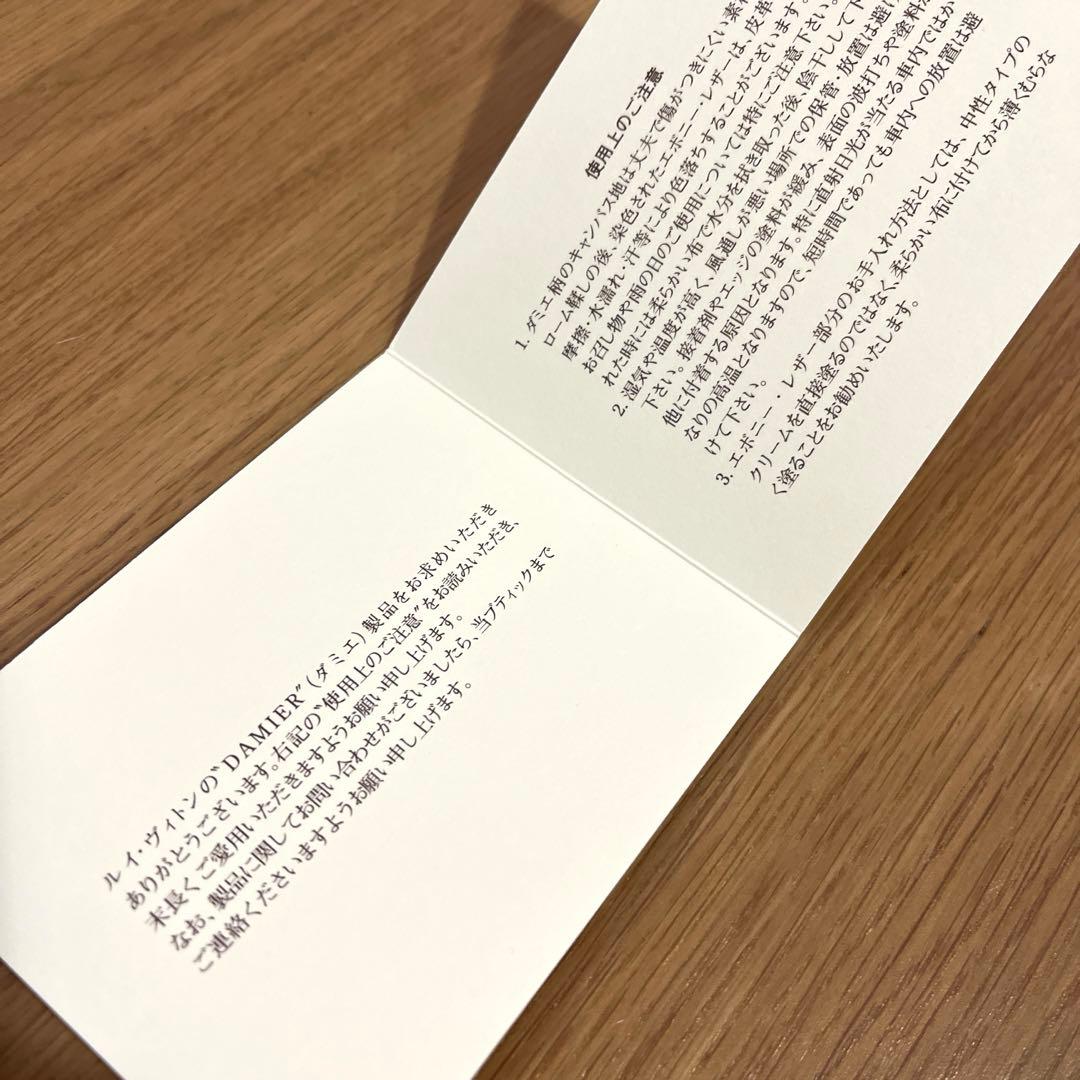 ルイ・ヴィトンの〝DAMIER〟(ダミエ)製品をお求めいただき
ありがとうございます。右記の〝使用上のご注意〟をお読みいただき、
末長くご愛用いただきますようお願い申し上げます。
なお、製品に関してお問い合わせがございましたら、当ブティックまで
ご連絡くださいますようお願い申し上げます。
使用上のご注意
1. ダミエ柄のキャンバス地は丈夫で傷がつきにくい素
ローム鞣しの後、染色されたエボニー・レザーは、皮革
摩擦・水濡れ・汗等により色落ちすることがございます。
お召し物や雨の日のご使用については特にご注意下さい。
れた時には柔らかい布で水分を拭き取った後、陰干しして下
2. 湿気や温度が高く、風通しが悪い場所での保管・放置は避け
下さい。接着剤やエッジの塗料が緩み、表面の波打ちや塗料が
他に付着する原因となります。特に直射日光が当たる車内ではか
なりの高温となりますので、短時間であっても車内への放置は避
けて下さい。
3. エボニー・レザー部分のお手入れ方法としては、中性タイプの
クリームを直接塗るのではなく、柔らかい布に付けてから薄くむらな
く塗ることをお勧めいたします。